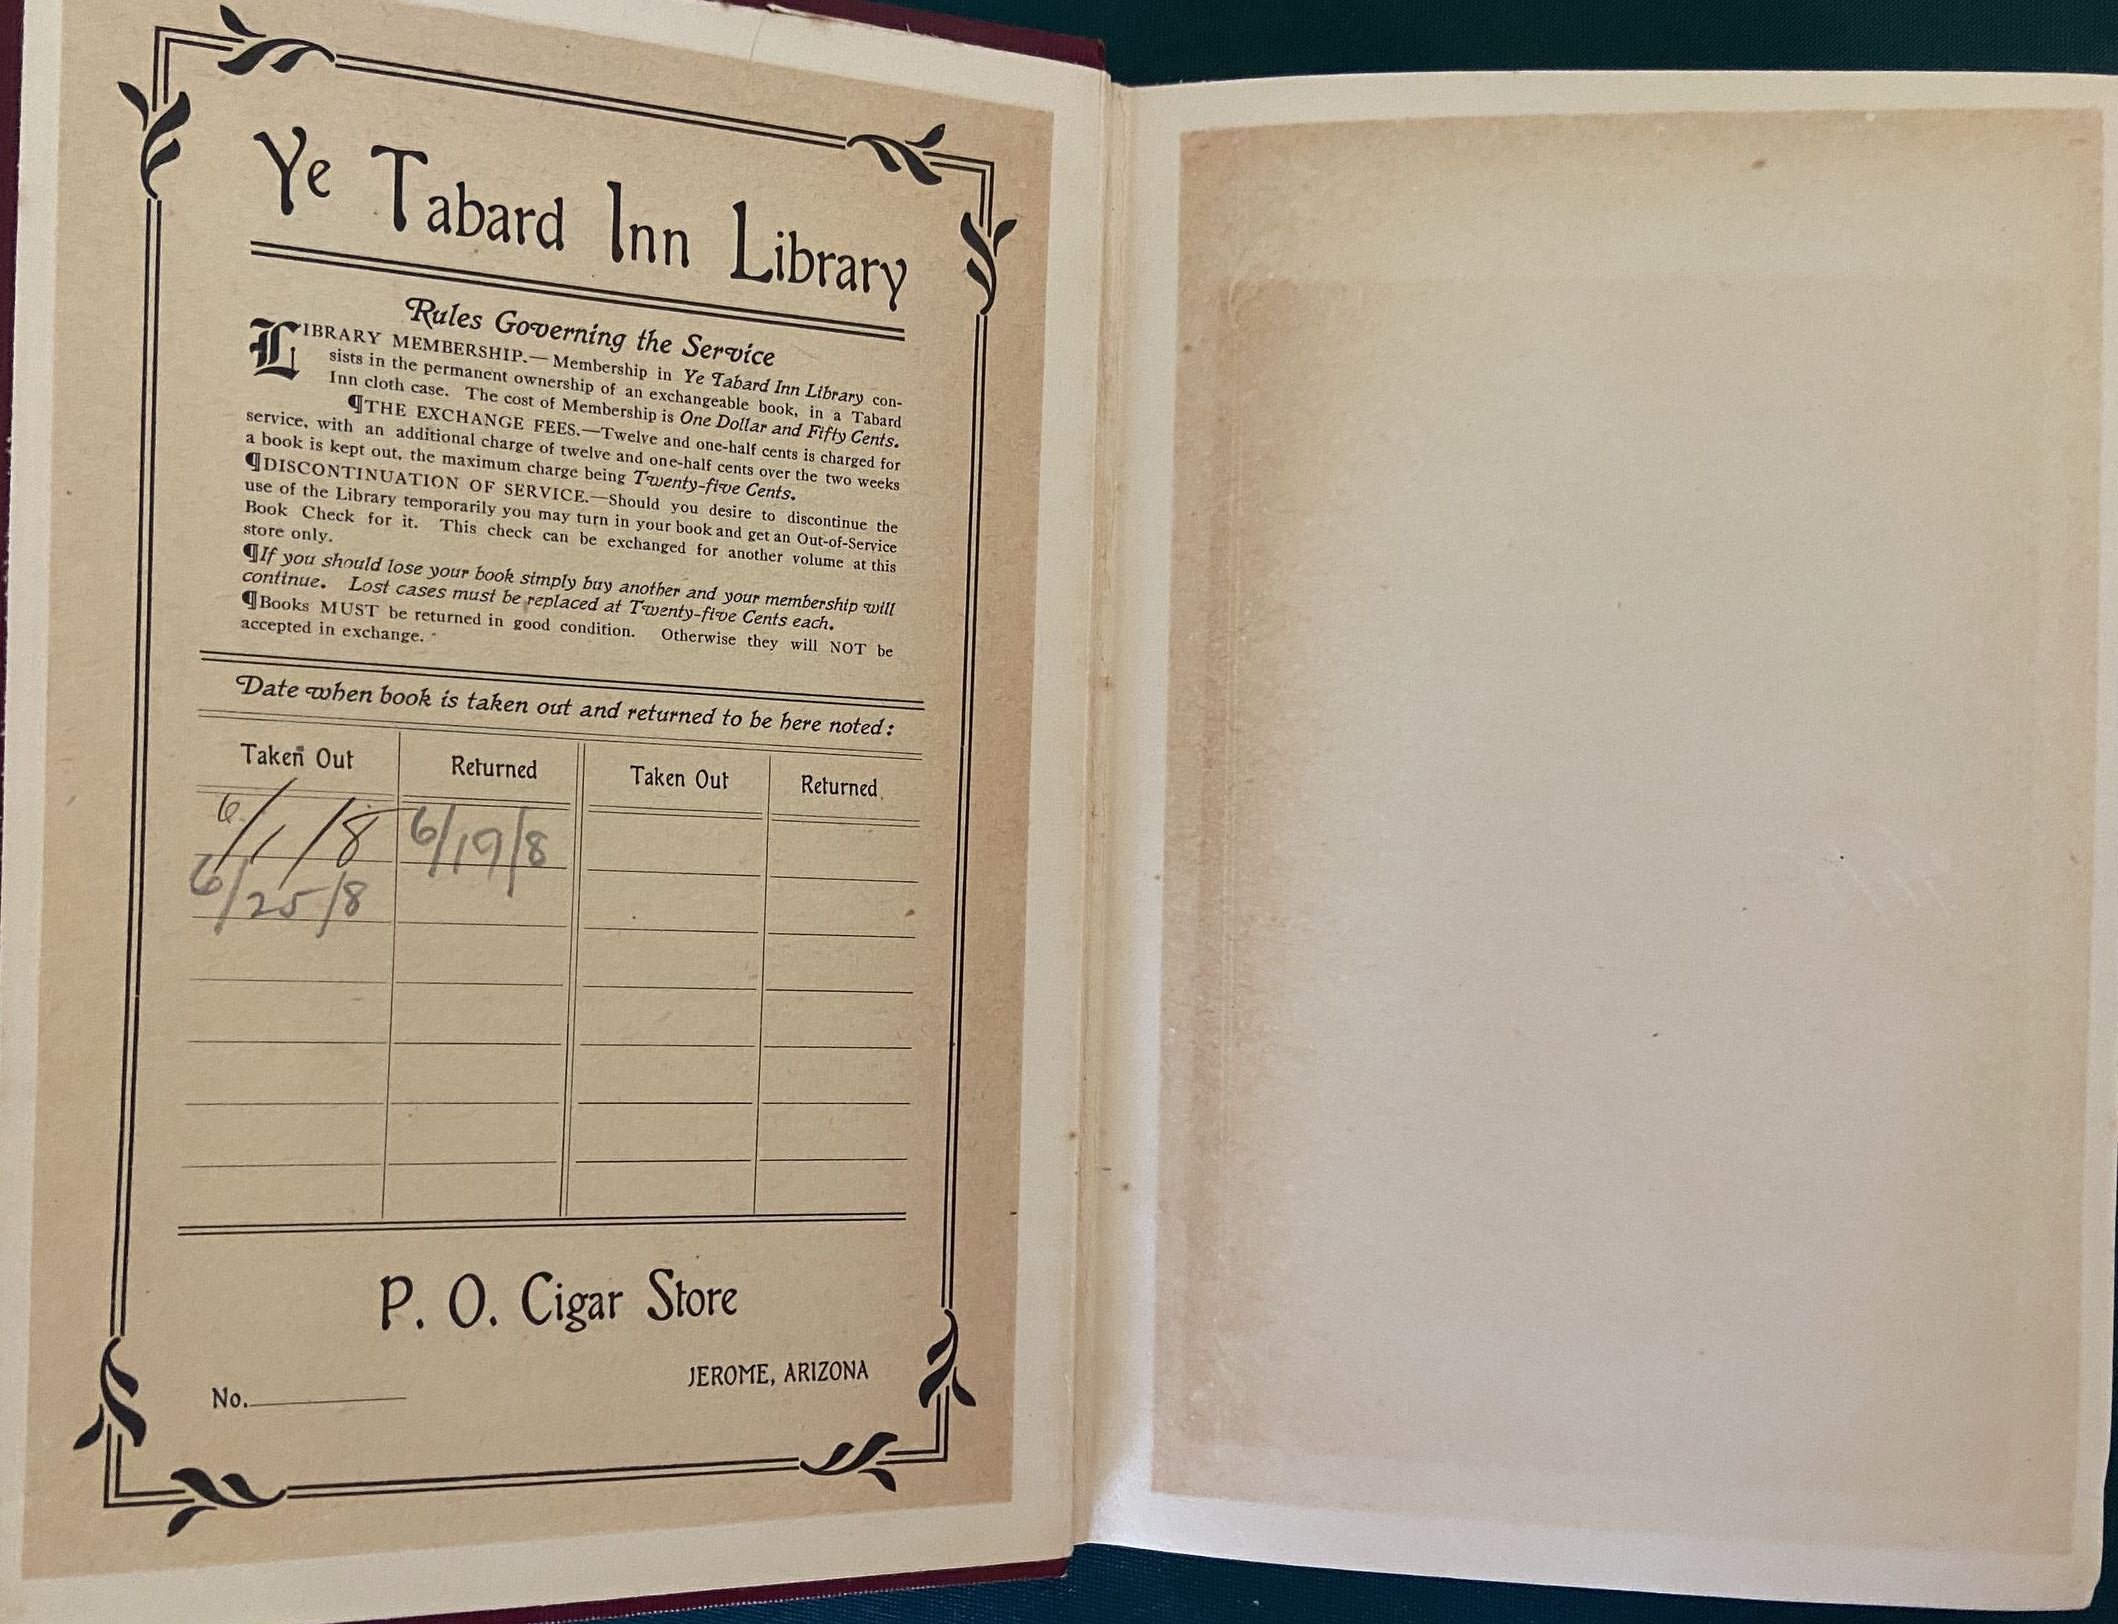 Ye Tabard Inn Library
Rules Governing the Service
LIBRARY MEMBERSHIP.— Membership in Ye Tabard Inn Library con-
sists in the permanent ownership of an exchangeable book, in a Tabard
Inn cloth case. The cost of Membership is One Dollar and Fifty Cents.
¶THE EXCHANGE FEES.—Twelve and one-half cents is charged for
service, with an additional charge of twelve and one-half cents over the two weeks
a book is kept out, the maximum charge being Twenty-five Cents.
¶DISCONTINUATION OF SERVICE.—Should you desire to discontinue the
use of the Library temporarily you may turn in your book and get an Out-of-Service
Book Check for it. This check can be exchanged for another volume at this
store only.
¶If you should lose your book simply buy another and your membership will
continue. Lost cases must be replaced at Twenty-five Cents each.
¶Books MUST be returned in good condition. Otherwise they will NOT be
accepted in exchange.
Date when book is taken out and returned to be here noted:
Taken Out Returned Taken Out Returned
6/1/8 6/19/8
6/25/8
P. O. Cigar Store
JEROME, ARIZONA
No.